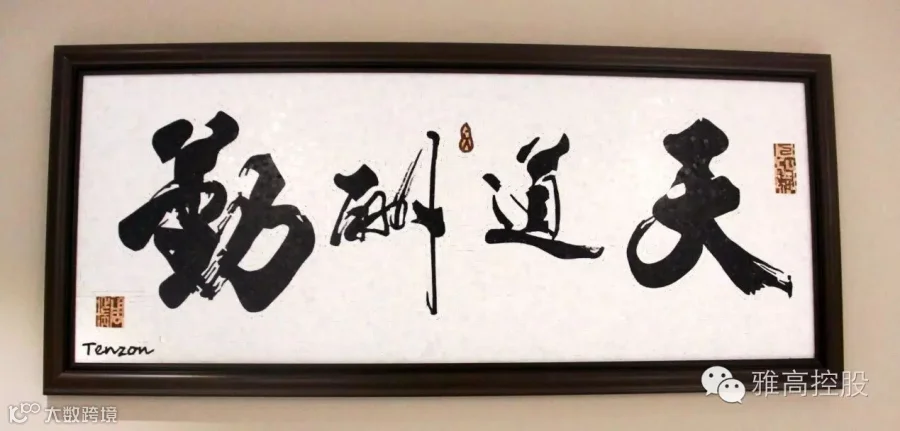 天道酬勤
Tenzon
雅高控股
大数跨境